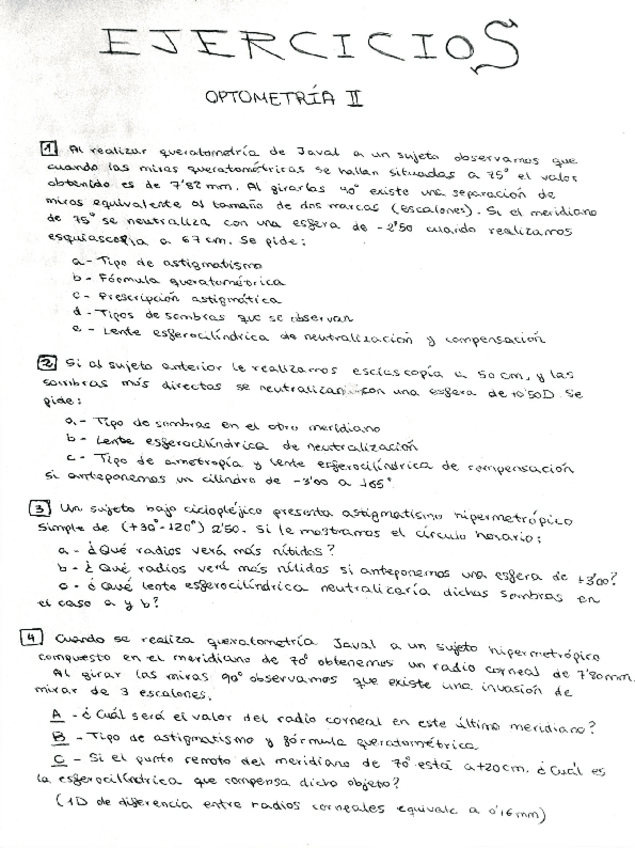 EJERCICIOS
OPTOMETRÍA II
1 Al realizar queratometría de Javal a un sujeto observamos que
cuando las miras queratométricas se hallan situadas a 75° el valor
obtenido es de 7'82 mm. Al girarlas 90° existe una separación de
miras equivalente al tamaño de dos marcas (escalones). Si el meridiano
de 75° se neutraliza con una esfera de -2'50 cuando realizamos
esquiascopia a 67 cm. Se pide:
a - Tipo de astigmatismo
b - Fórmula queratométrica
c - Prescripción astigmática
d - Tipos de sombras que se observan
e - Lente esferocilíndrica de neutralización y compensación
2 Si al sujeto anterior le realizamos escíascopía a 50 cm, y las
sombras más directas se neutralizan con una esfera de +0'50D. Se
pide:
a - Tipo de sombras en el otro meridiano
b - Lente esferocilíndrica de neutralización
c - Tipo de ametropía y lente esferocilíndrica de compensación
si anteponemos un cilindro de -3'00 a 165°
3 Un sujeto bajo ciclopléjico presenta astigmatismo hipermetrópico
simple de (+30°-120°) 2'50. Si le mostramos el círculo horario:
a - ¿Qué radios verá más nítidos?
b - ¿Qué radios verá más nítidos si anteponemos una esfera de +3'00?
c - ¿Qué lente esferocilíndrica neutralizaría dichas sombras en
el caso a y b?
4 Cuando se realiza queratometría Javal a un sujeto hipermetrópico
compuesto en el meridiano de 70° obtenemos un radio corneal de 7'80mm.
Al girar las miras 90° observamos que existe una invasión de
mirar de 3 escalones.
A - ¿Cuál será el valor del radio corneal en este último meridiano?
B - Tipo de astigmatismo y fórmula queratométrica
C - Si el punto remoto del meridiano de 70° está a +20cm. ¿Cuál es
la esferocilíndrica que compensa dicho objeto?
(1D de diferencia entre radios corneales equivale a 0'16 mm)